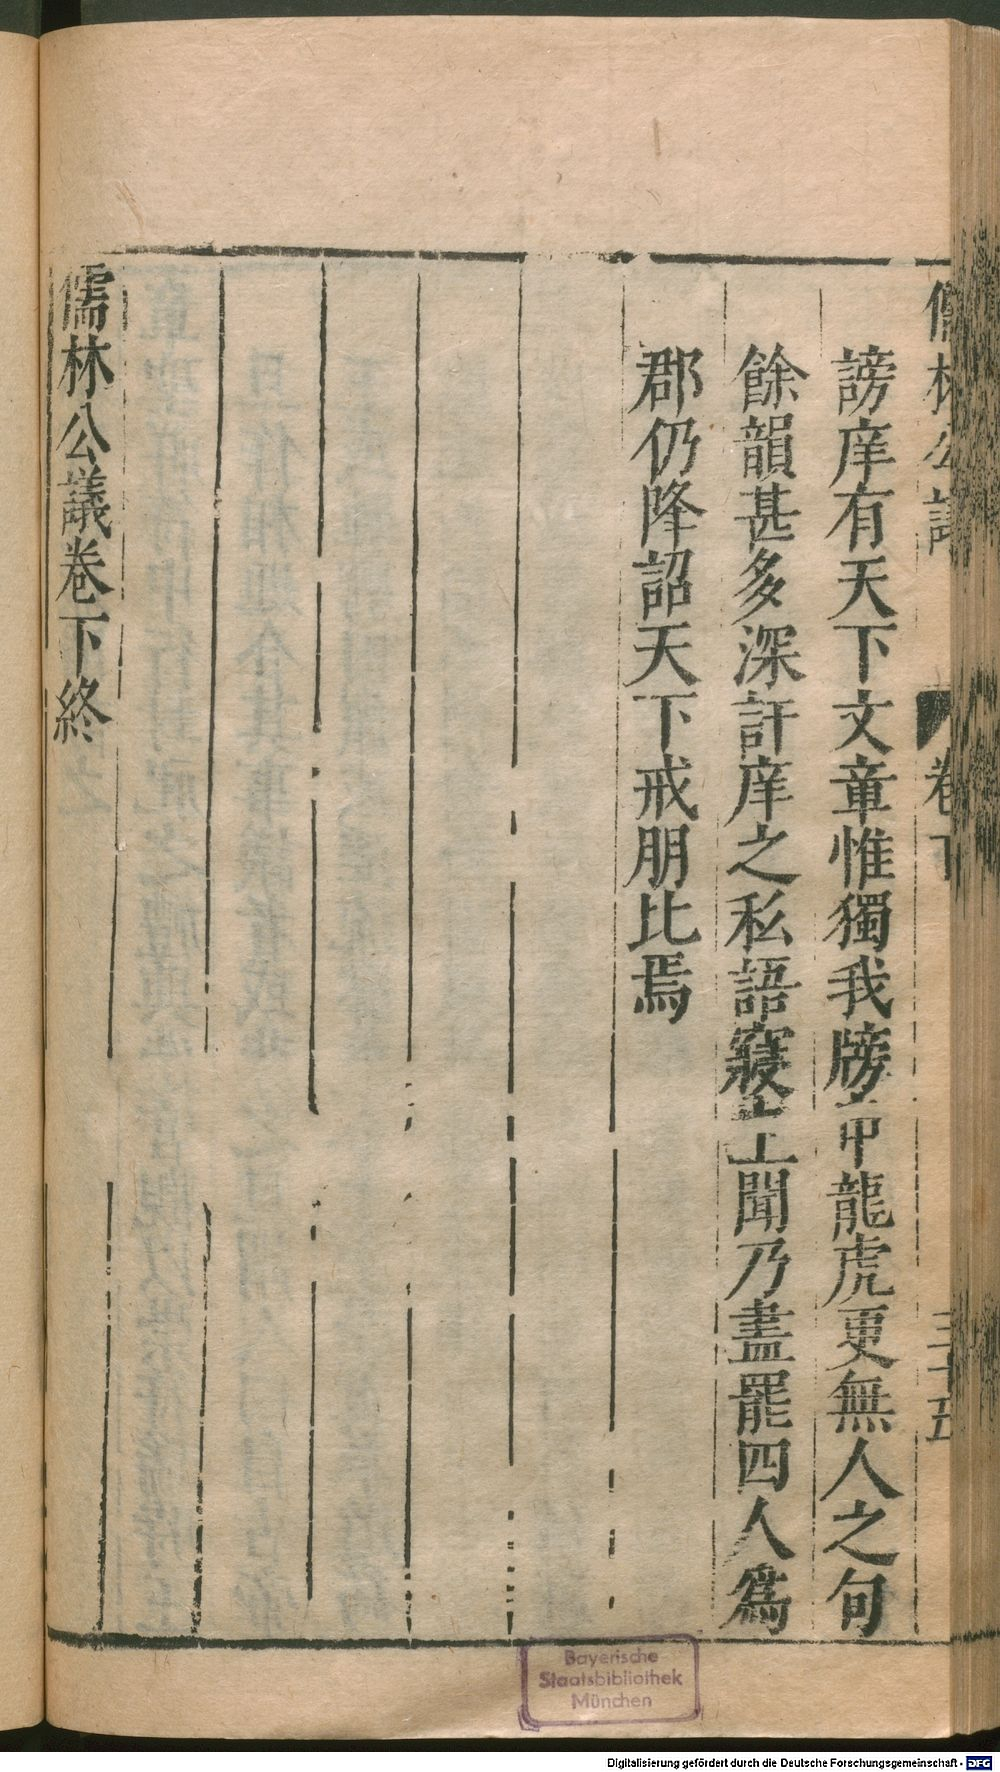 儒林公議
卷下
三十五
謗庠有天下文章惟獨我牓中龍虎更無人之句
餘韻甚多深訐庠之私語寖上聞乃盡罷四人爲
郡仍降詔天下戒朋比焉
儒林公議卷下終
Bayerische
Staatsbibliothek
München
Digitalisierung gefördert durch die Deutsche Forschungsgemeinschaft - DFG